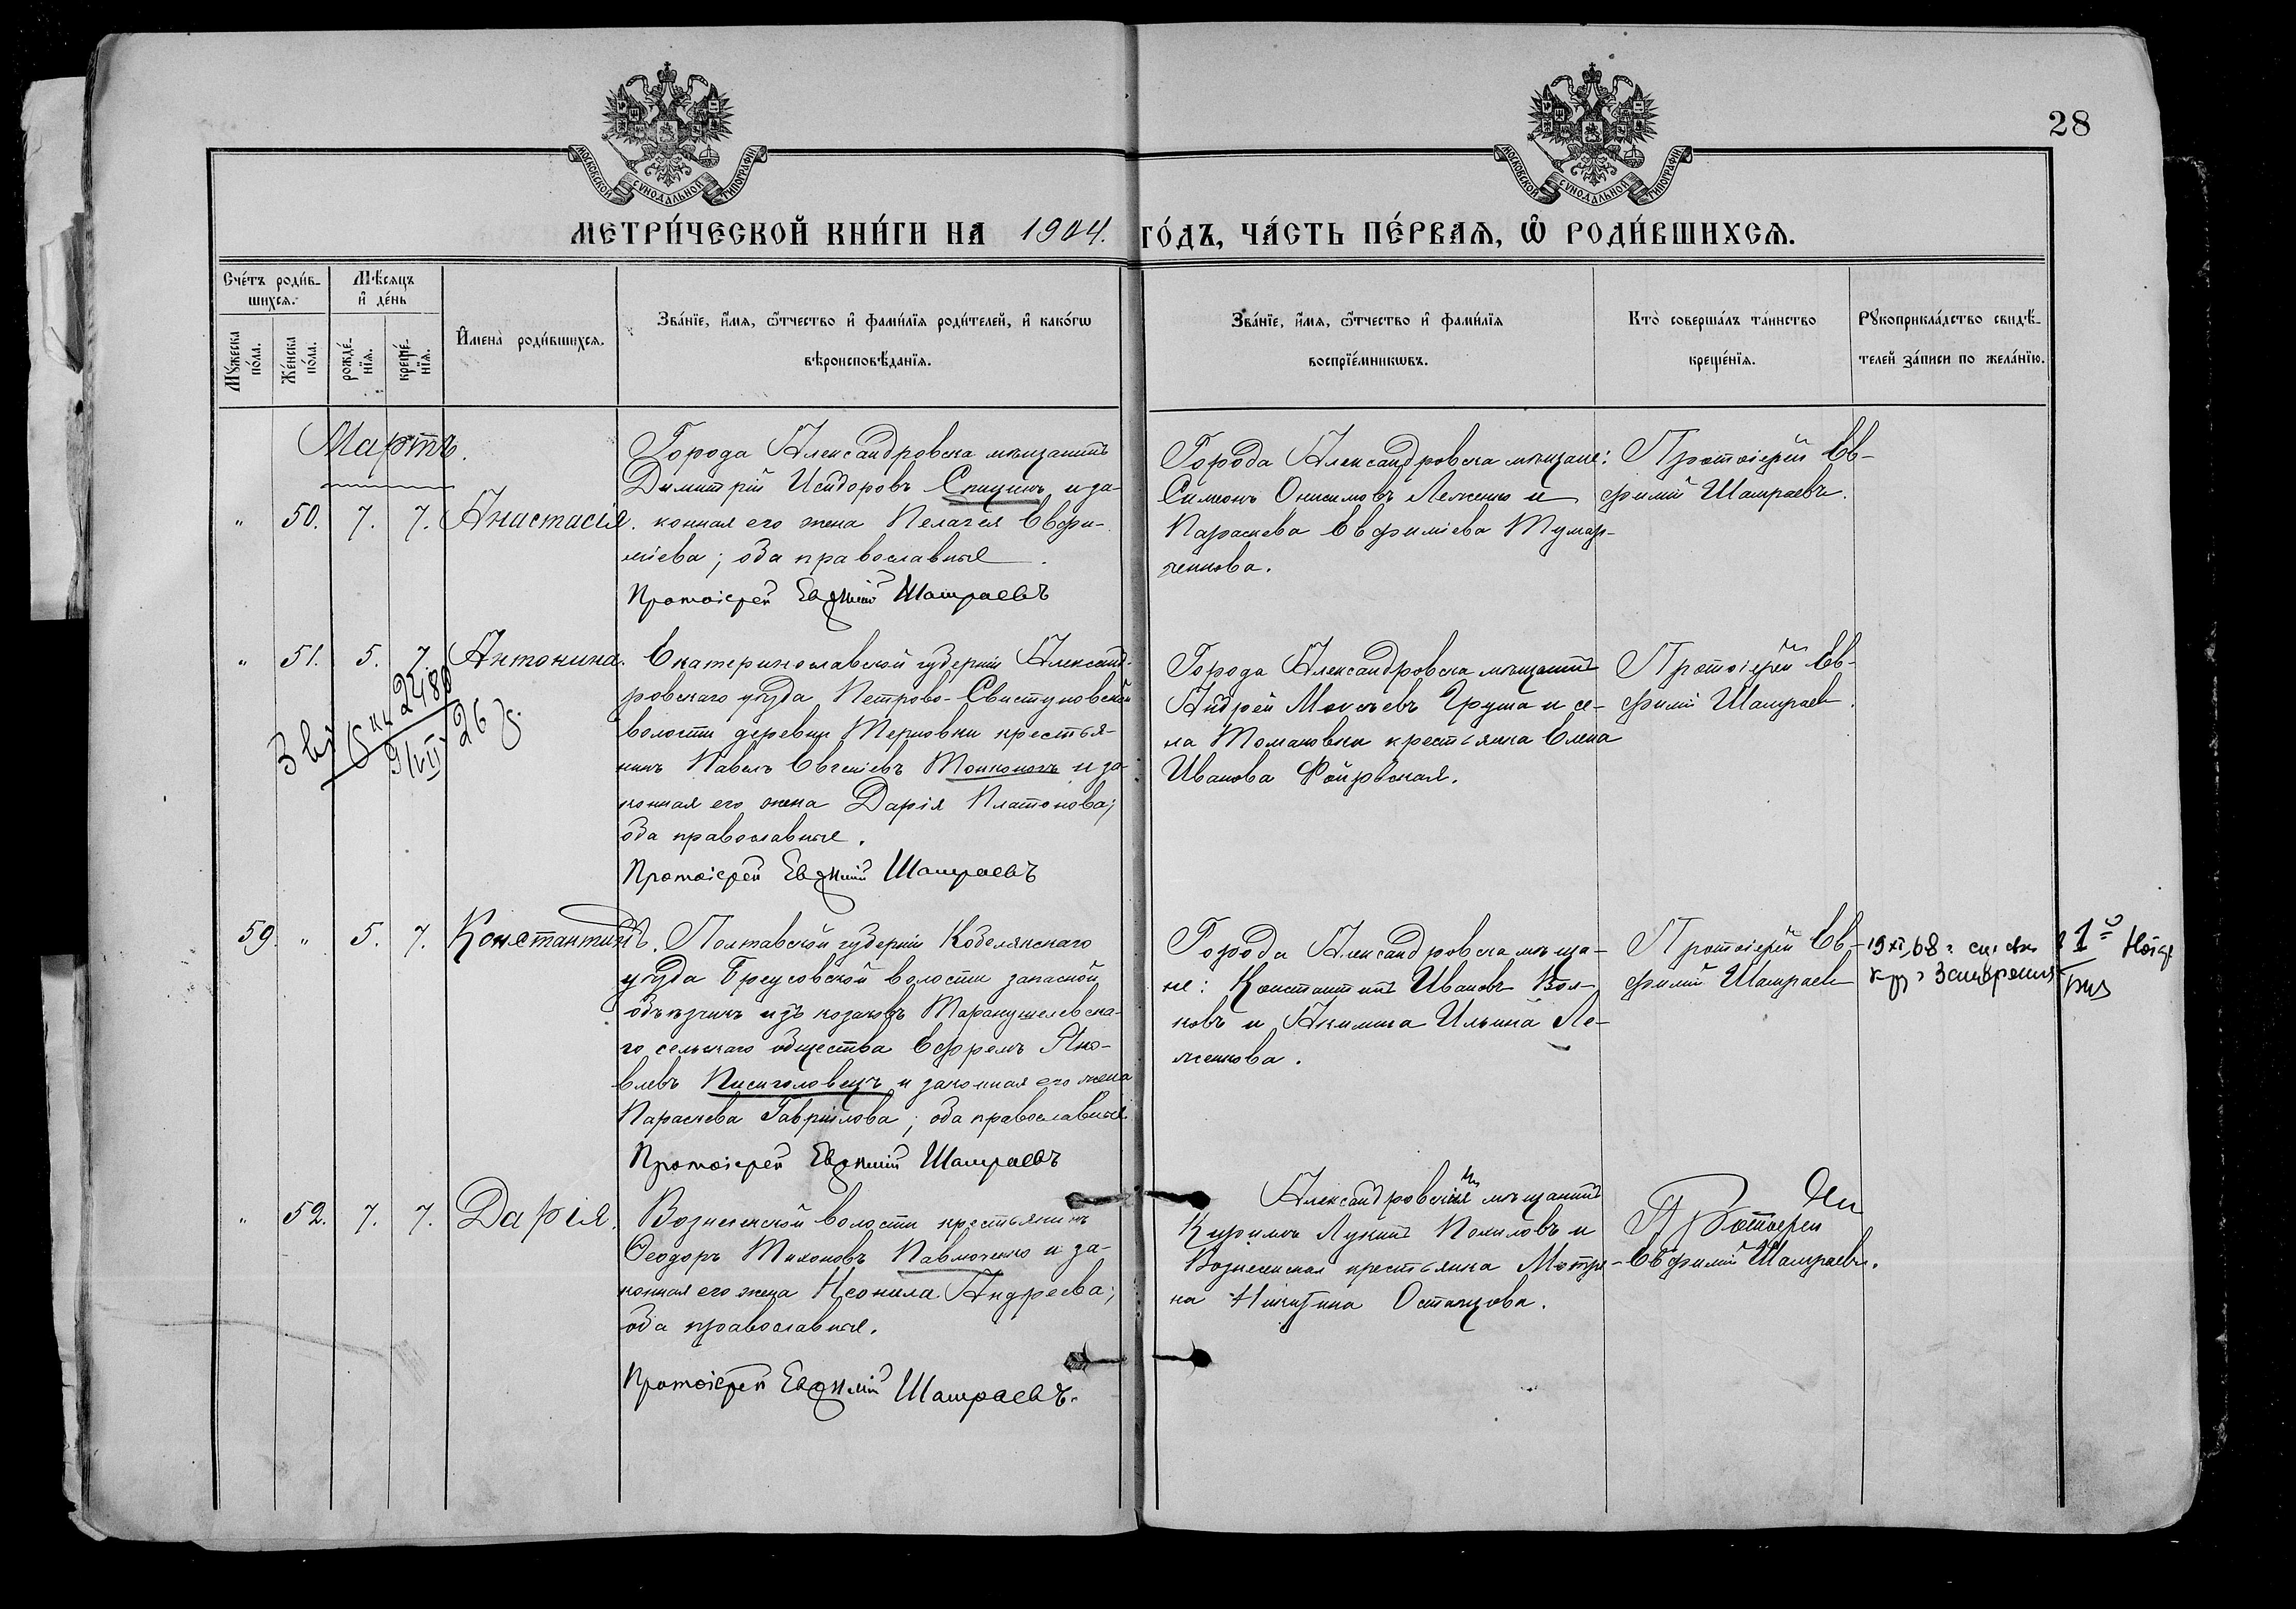 28
МОСКОВСКОЙ СѴНОДАЛЬНОЙ ТИПОГРАФІИ
МОСКОВСКОЙ СѴНОДАЛЬНОЙ ТИПОГРАФІИ
МЕТРИ́ЧЕСКОЙ КНИ́ГИ НА 1904. ГО́ДЪ, ЧА́СТЬ ПЕ́РВАѦ, Ѡ҆ РОДИ́ВШИХСѦ.
Сче́тъ роди́в-
шихсѧ.
Мѣ́сяцъ
и҆ де́нь
Мꙋ́жеска
по́ла.
Же́нска
по́ла.
рожде́-
нїѧ.
креще́-
нїѧ.
И҆мена̀ роди́вшихсѧ.
Зва́нїе, и҆́мѧ, ѻ҆́тчество и҆ фами́лїѧ роди́телей, и҆ како́гѡ
вѣроисповѣ́данїѧ.
Зва́нїе, и҆́мѧ, ѻ҆́тчество и҆ фами́лїѧ
воспрїе́мникѡвъ.
Кто̀ соверша́лъ та́инство
креще́нїѧ.
Рꙋкоприкла́дство свидѣ́-
телей за́писи по жела́нїю.
Мартъ.
" 50. 7. 7. Анастасія.
Города Александровска мѣщанинъ
Димитрій Исидоровъ Спицинъ и за-
конная его жена Пелагея Евфи-
міева; оба православные.
Протоіерей Евѳимій Шамраевъ
Города Александровска мѣщане:
Симеонъ Онисимовъ Леженко и
Параскева Евфиміева Тумар-
ченкова.
Протоіерей Ев-
фимій Шамраевъ.
" 51. 5. 7. Антонина.
2480
26 г.
Екатеринославской губерніи Александ-
ровскаго уѣзда Петрово-Свистуновской
волости деревни Терновки крестья-
нинъ Павелъ Евгеніевъ Тонконогъ и за-
конная его жена Дарія Платонова;
оба православные.
Протоіерей Евѳимій Шамраевъ
Города Александровска мѣщанинъ
Андрей Моисѣевъ Груша и се-
ла Томаковки крестьянка Елена
Иванова
Протоіерей Ев-
фимій Шамраевъ.
59. " 5. 7. Константинъ.
Полтавской губерніи Кобелякскаго
уѣзда Бреусовской волости запасной
объѣзчикъ изъ козаковъ Тарапушелевска-
го сельскаго общества Ефремъ Яко-
влевъ Писиголовецъ и законная его жена
Параскева Гавріилова; оба православные.
Протоіерей Евѳимій Шамраевъ
Города Александровска мѣща-
не: Константинъ Ивановъ Вол-
ковъ и Акилина Ильина Ле-
женкова.
Протоіерей Ев-
фимій Шамраевъ
19 XI 68 г.
" 52. 7. 7. Дарія.
Вознесенской волости крестьянинъ
Ѳеодоръ Тихоновъ Павлюченко и за-
конная его жена Неонила Андреева;
оба православные.
Протоіерей Евѳимій Шамраевъ.
Александровскій мѣщанинъ
Кириллъ Лукинъ Помиловъ и
Вознесенская крестьянка Матре-
на Никитина Остапцова.
Протоіерей
Евфимій Шамраевъ.